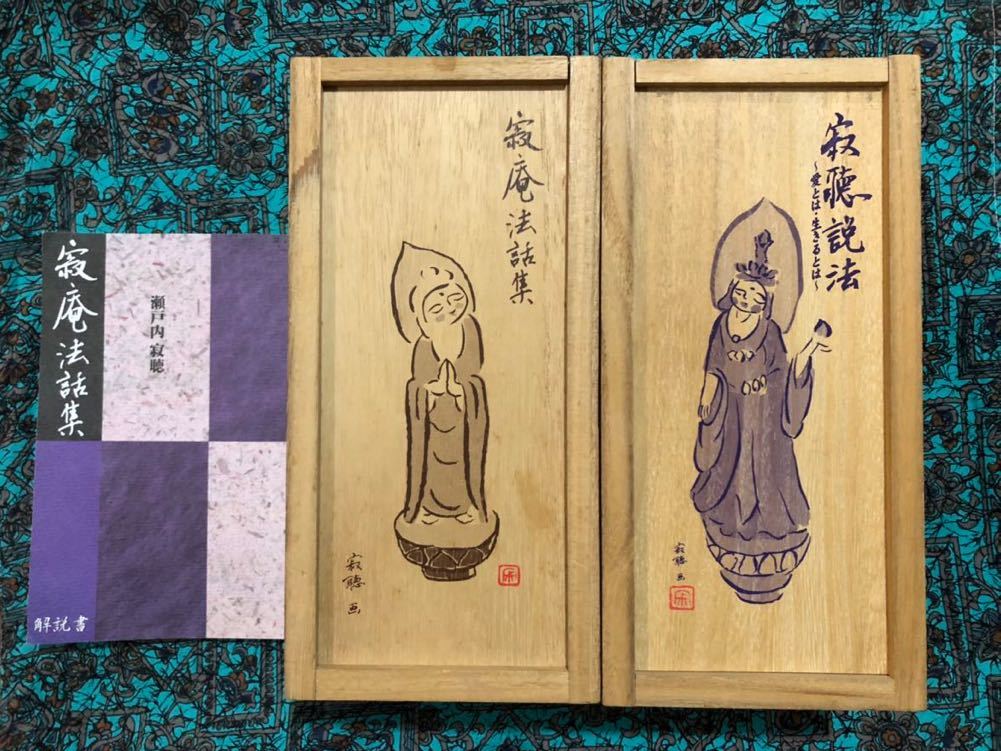 寂庵法話集
瀬戸内 寂聴
解説書
寂庵法話集
寂聴 画
寂聴説法
〜愛とは・生きるとは〜
寂聴 画